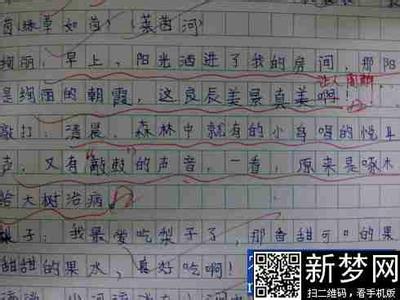 茵绿草如茵）（莱茵河）
绚丽：早上，阳光洒进了我的房间，那阳
让人陶醉
是绚丽的朝霞，这良辰美景真美啊！
敲打：清晨，森林中就有的小鸟唱的悦耳
声，又有"敲鼓的声音，一看，原来是啄木
给大树治病。
梨子：我最爱吃梨子了，那香甜可口的果
甜甜的果水，真好吃啊！
新梦网
扫二维码，看手机版